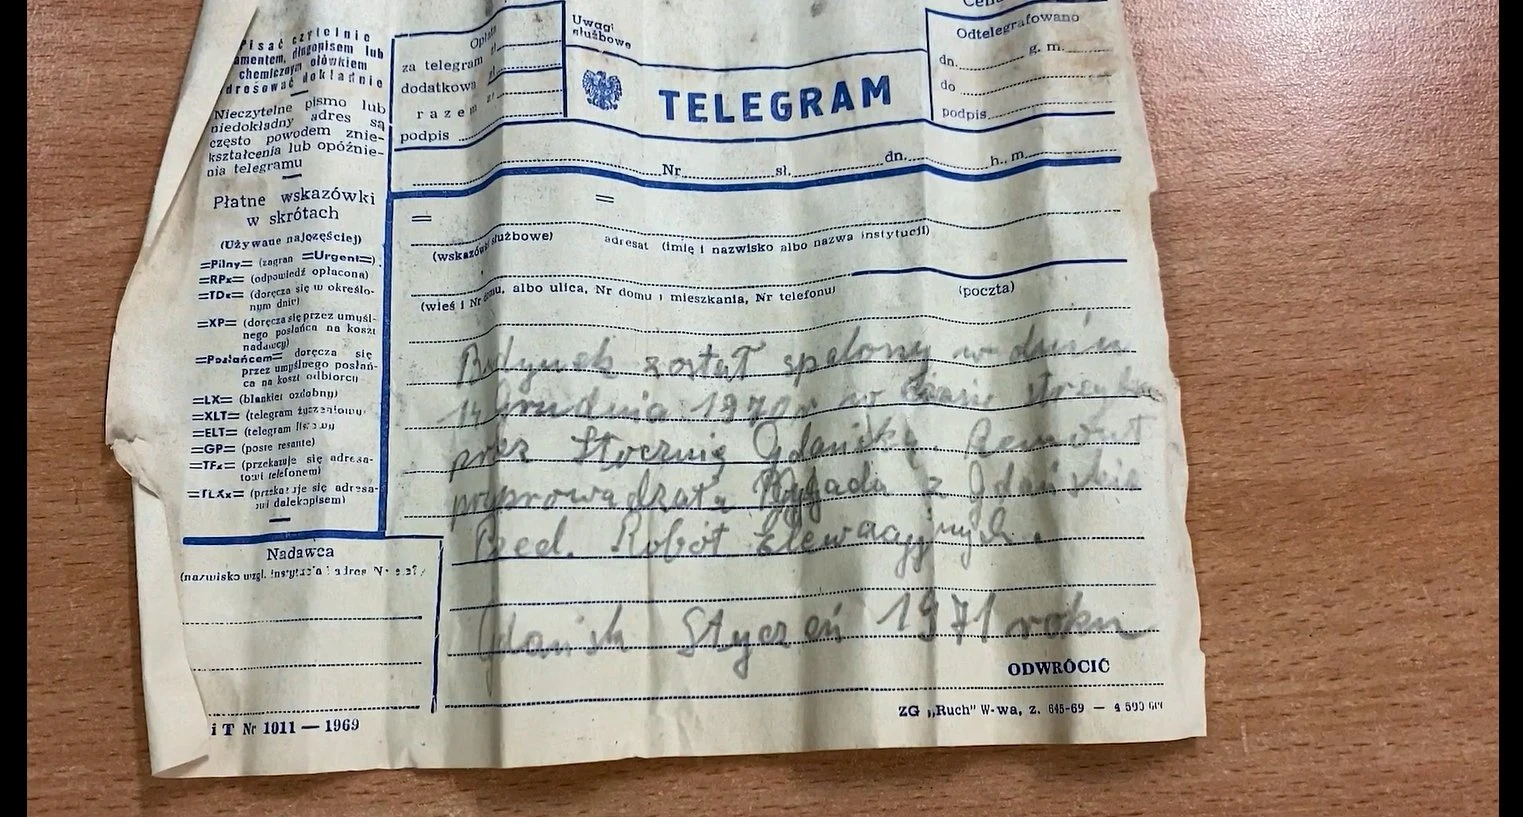 Pisać czytelnie
amentem, długopisem lub
chemicznym ołówkiem
dresować dokładnie
Nieczytelne pismo lub
niedokładny adres są
często powodem znie-
kształcenia lub opóźnie-
nia telegramu
Płatne wskazówki
w skrótach
(Używane najczęściej)
=Pilny= (zagran =Urgent=)
=RPx= (odpowiedź opłacona)
=TDx= (doręcza się w określo-
nym dniu)
=XP= (doręcza się przez umyśl-
nego posłańca na koszt
nadawcy)
=Posłańcem= doręcza się
przez umyślnego posłań-
ca na koszt odbiorcy
=LX= (blankiet ozdobny)
=XLT= (telegram życzeniowy)
=ELT= (telegram listowy)
=GP= (poste restante)
=TFx= (przekazuje się adresa-
towi telefonem)
=TLXx= (przekazuje się adresa-
towi dalekopisem)
Nadawca
(nazwisko wzgl. instytucja i adres
i T Nr 1011 — 1969
Opłata
za telegram zł
dodatkowa zł
razem zł
podpis
Uwagi
służbowe
TELEGRAM
Odtelegrafowano
dn. g. m.
do
podpis
Nr sł. dn. h. m.
= =
(wskazówki służbowe) adresat (imię i nazwisko albo nazwa instytucji)
(wieś i Nr domu, albo ulica, Nr domu i mieszkania, Nr telefonu) (poczta)
Budynek został spalony w dniu
14 Grudnia 1970 r w czasie strajku
przez Stocznię Gdańską. Remont
przeprowadzała Brygada z Gdańskie
Przed. Robót Elewacyjnych.
Gdańsk Styczeń 1971 roku
ODWRÓCIĆ
ZG „Ruch" W-wa, z. 645-69 — 4 500